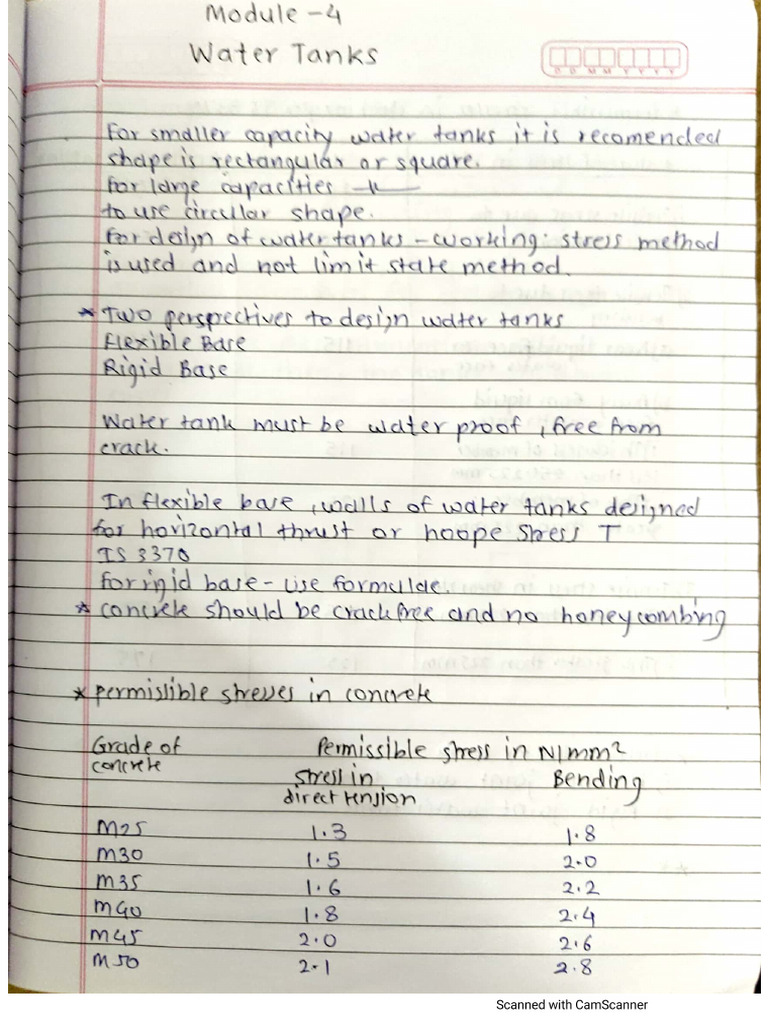 Module - 4
Water Tanks
D D M M Y Y Y Y
For smaller capacity water tanks it is recomended
shape is rectangular or square.
For large capacities —〃—
to use circular shape.
For design of water tanks - working stress method
is used and not limit state method.
* Two perspectives to design water tanks
Flexible Base
Rigid Base
Water tank must be water proof, free from
crack.
In flexible base, walls of water tanks designed
for horizontal thrust or hoope stress T
IS 3370
For rigid base - use formulae.
* concrete should be crack free and no honeycombing
* permissible stresses in concrete
Grade of concrete Permissible stress in N/mm²
stress in direct tension Bending
M25 1.3 1.8
M30 1.5 2.0
M35 1.6 2.2
M40 1.8 2.4
M45 2.0 2.6
M50 2.1 2.8
Scanned with CamScanner